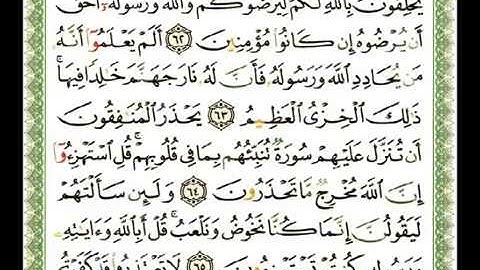 يَحْلِفُونَ بِٱللَّهِ لَكُمْ لِيُرْضُوكُمْ وَٱللَّهُ وَرَسُولُهُۥٓ أَحَقُّ
أَن يُرْضُوهُ إِن كَانُوا۟ مُؤْمِنِينَ ٦٢ أَلَمْ يَعْلَمُوٓا۟ أَنَّهُۥ
مَن يُحَادِدِ ٱللَّهَ وَرَسُولَهُۥ فَأَنَّ لَهُۥ نَارَ جَهَنَّمَ خَٰلِدًا فِيهَا ۚ
ذَٰلِكَ ٱلْخِزْىُ ٱلْعَظِيمُ ٦٣ يَحْذَرُ ٱلْمُنَٰفِقُونَ
أَن تُنَزَّلَ عَلَيْهِمْ سُورَةٌ تُنَبِّئُهُم بِمَا فِى قُلُوبِهِمْ ۚ قُلِ ٱسْتَهْزِءُوٓا۟
إِنَّ ٱللَّهَ مُخْرِجٌ مَّا تَحْذَرُونَ ٦٤ وَلَئِن سَأَلْتَهُمْ
لَيَقُولُنَّ إِنَّمَا كُنَّا نَخُوضُ وَنَلْعَبُ ۚ قُلْ أَبِٱللَّهِ وَءَايَٰتِهِۦ
وَرَسُولِهِۦ كُنتُمْ تَسْتَهْزِءُونَ ٦٥ لَا تَعْتَذِرُوا۟ قَدْ كَفَرْتُم